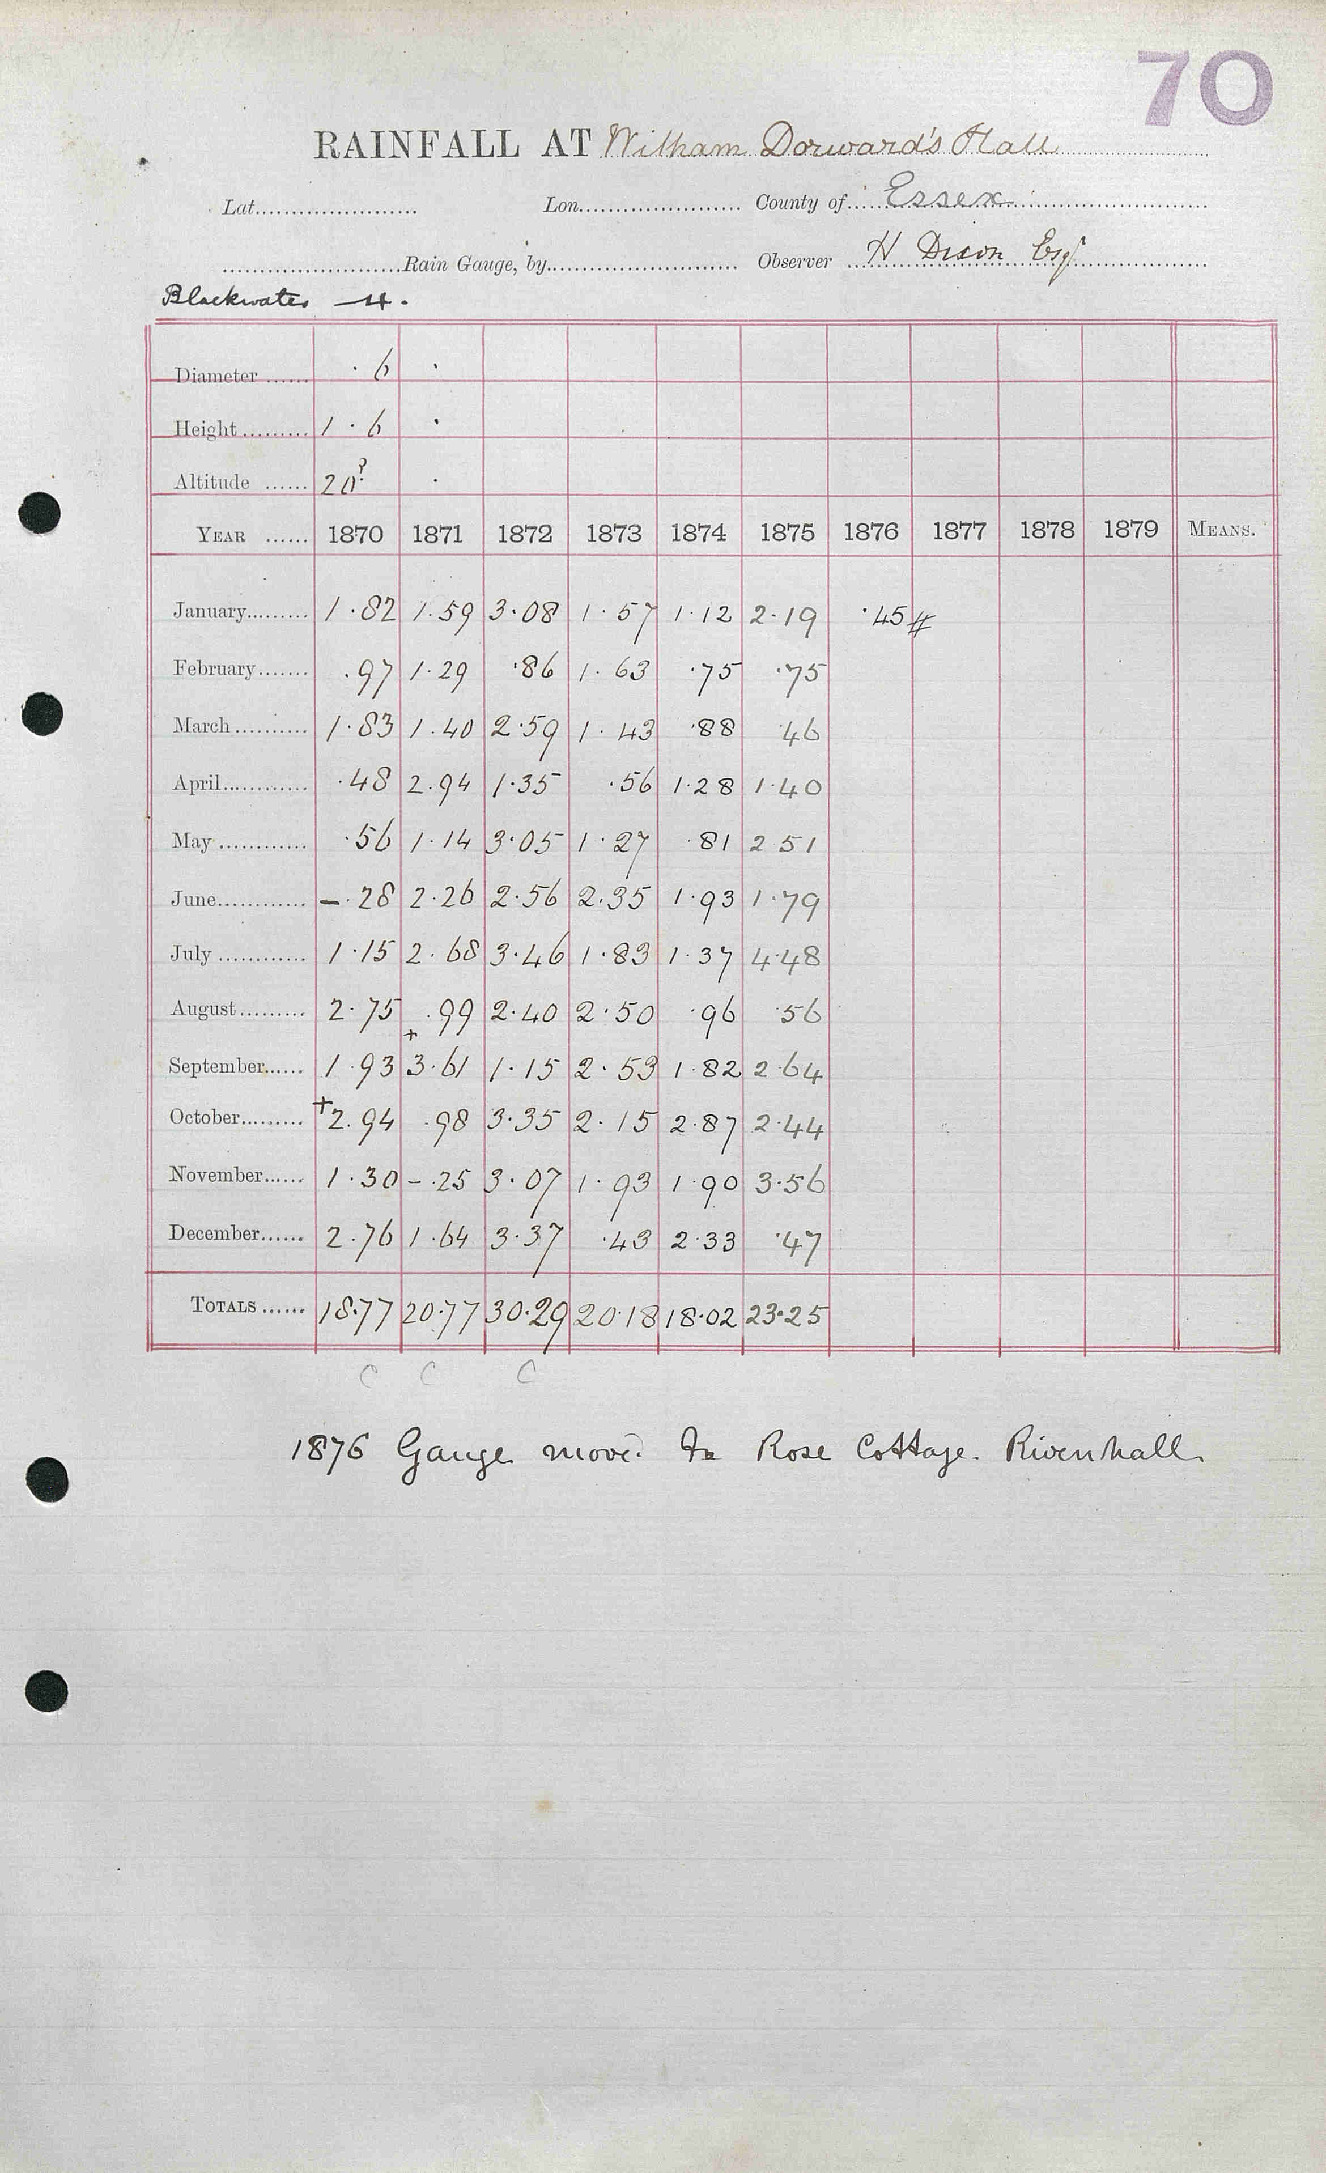 70
RAINFALL AT Witham Dorward's Hall
Lat...................... Lon....................... County of Essex
.........................Rain Gauge, by.......................... Observer H Dixon Esqr
Blackwater — 4.
Diameter ...... · 6 ·
Height ......... 1 · 6 ·
Altitude ...... 20? ·
YEAR ...... 1870 1871 1872 1873 1874 1875 1876 1877 1878 1879 MEANS.
January......... 1·82 1·59 3·08 1·57 1·12 2·19 ·45 #
February....... ·97 1·29 ·86 1·63 ·75 ·75
March .......... 1·83 1·40 2·59 1·43 ·88 46
April............ ·48 2·94 1·35 ·56 1·28 1·40
May ............ ·56 1·14 3·05 1·27 ·81 2 51
June............ – ·28 2·26 2·56 2·35 1·93 1·79
July ............ 1·15 2·68 3·46 1·83 1·37 4·48
August......... 2·75 ·99 2·40 2·50 ·96 ·56
September...... 1·93 + 3·61 1·15 2·59 1·82 2·64
October......... + 2·94 ·98 3·35 2·15 2·87 2·44
November...... 1·30 – ·25 3·07 1·93 1·90 3·56
December...... 2·76 1·64 3·37 ·43 2·33 ·47
TOTALS ...... 18·77 20·77 30·29 20·18 18·02 23·25
C C C
1876 Gauge moved to Rose Cottage. Rivenhall.